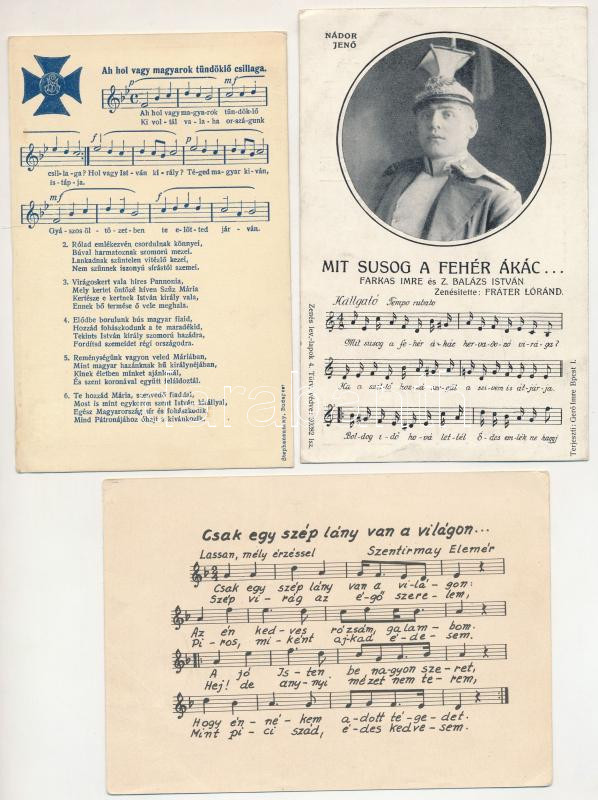 Ah hol vagy magyarok tündöklő csillaga.
p mf
Ah hol vagy ma-gya-rok tün-dök-lő
Ki vol-tál va-la-ha or-szá-gunk
f p
csil-la-ga? Hol vagy Ist-ván ki-rály? Té-ged ma-gyar kí-ván,
is-táp-ja.
mf f
Gyá-szos öl-tö-zet-ben te e-lőt-ted jár-ván.
2. Rólad emlékezvén csordulnak könnyei,
Búval harmatoznak szomorú mezei.
Lankadnak szüntelen vitézlő kezei,
Nem szünnek iszonyú sírástól szemei.
3. Virágoskert vala híres Pannonia,
Mely kertet öntözé híven Szűz Mária
Kertésze e kertnek István király vala,
Ennek bő termése ő vele meghala.
4. Elődbe borulunk bús magyar fiaid,
Hozzád fohászkodunk a te maradékid,
Tekints István király szomorú hazádra,
Fordítsd szemeidet régi országodra.
5. Reménységünk vagyon veled Máriában,
Mint magyar hazánknak hű királynéjában,
Kinek életben minket ajánlánál,
És szent koronával együtt feláldoztál.
6. Te hozzád Mária, szenvedő fiaddal,
Most is mint egykoron szent István királlyal,
Egész Magyarország sír és fohászkodik,
Mind Pátronájához óhajt s kívánkozik.
Stephaneum ny. Budapest
NÁDOR
JENŐ
MIT SUSOG A FEHÉR ÁKÁC...
FARKAS IMRE és Z. BALÁZS ISTVÁN
Zenésitette: FRÁTER LÓRÁND.
Hallgató Tempo rubato
Mit susog a fe-hér á-kác her-va-do-zó vi-rá-ga?
Ha a szél-lő hoz-zá-nyúl a szi-vem is át-jár-ja.
Bol-dog i-dő ho-vá let-tél é-des em-lék ne hagyj
Zenés lev.-lapok 4. Törv. védve: 30282 lsz.
Terjeszti: Gerő Imre Bpest I.
Csak egy szép lány van a világon...
Lassan, mély érzéssel Szentirmay Elemér
Csak egy szép lány van a vi-lá-gon:
Szép vi-rág az é-gő szere-lem,
Az én ked-ves ró-zsám, galam-bom.
Pi-ros, mi-ként aj-kad é-de-sem.
A jó Is-ten be nagyon sze-ret,
Hej! de any-nyi mézet nem te-rem,
Hogy én-né-kem a-dott té-ge-det.
Mint pi-ci szád, é-des kedve-sem.